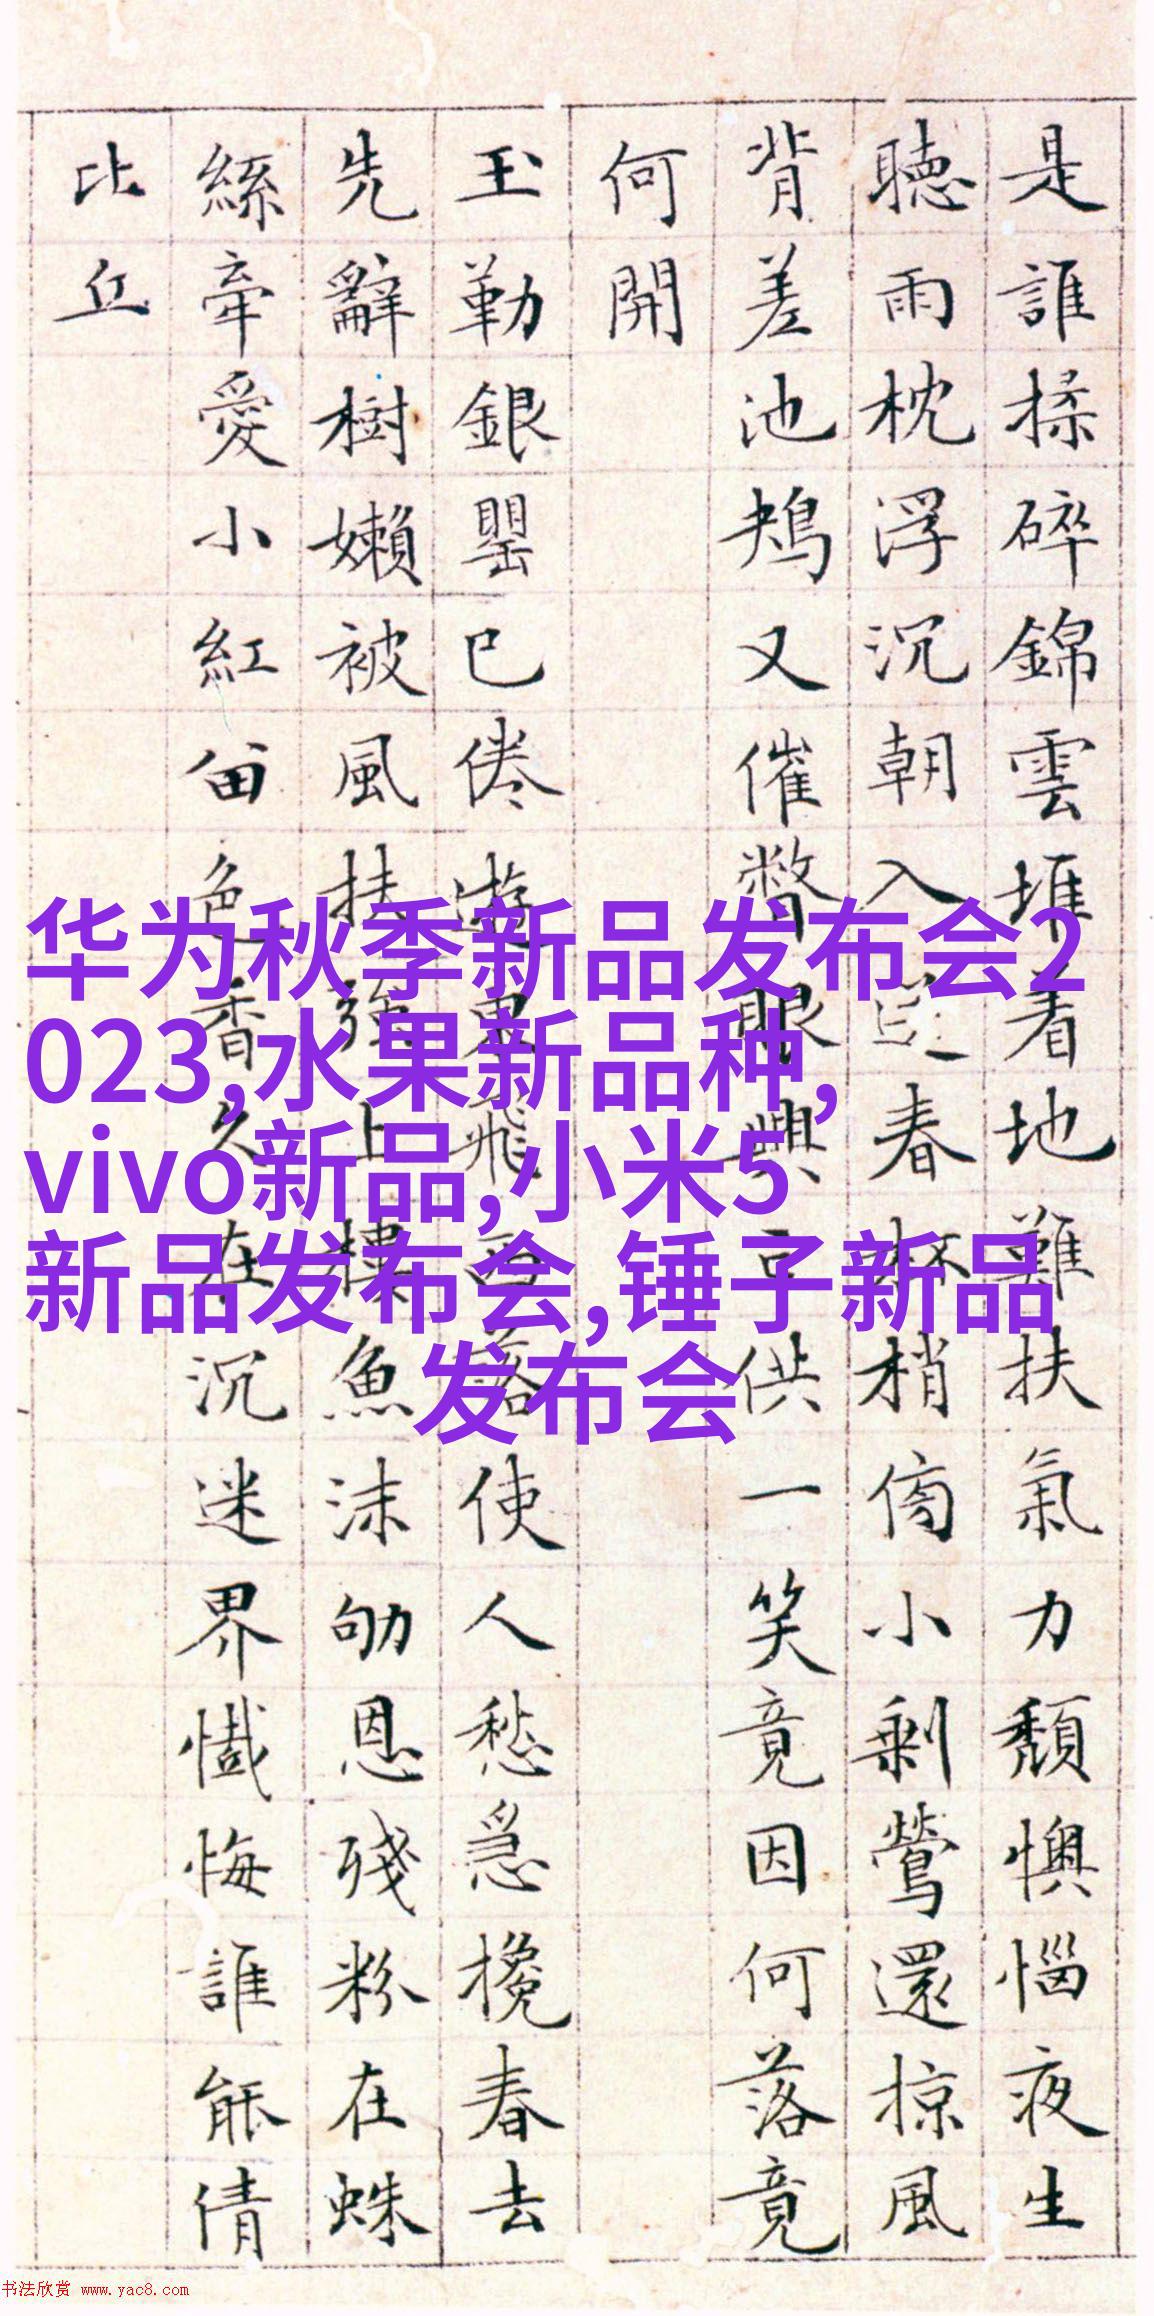 是誰揉碎錦雲堆着地難扶氣力頹懊惱夜生
聽雨枕浮沉朝入送春杯梢小剩鶯還掠風
背差池鳷又催弊眼興言供一笑竟因何落竟
何開
玉勒銀罌已倦遊東飛西落使人愁急攙春去
先辭樹嬾被風扶強上樓魚沫劬恩殘粉在蛛
絲牽愛小紅留色香久在沉迷界懺悔誰能倩
比丘
华为秋季新品发布会2
023,水果新品种,
vivo新品,小米5
新品发布会,锤子新品
发布会
书法欣赏 www.yac8.com